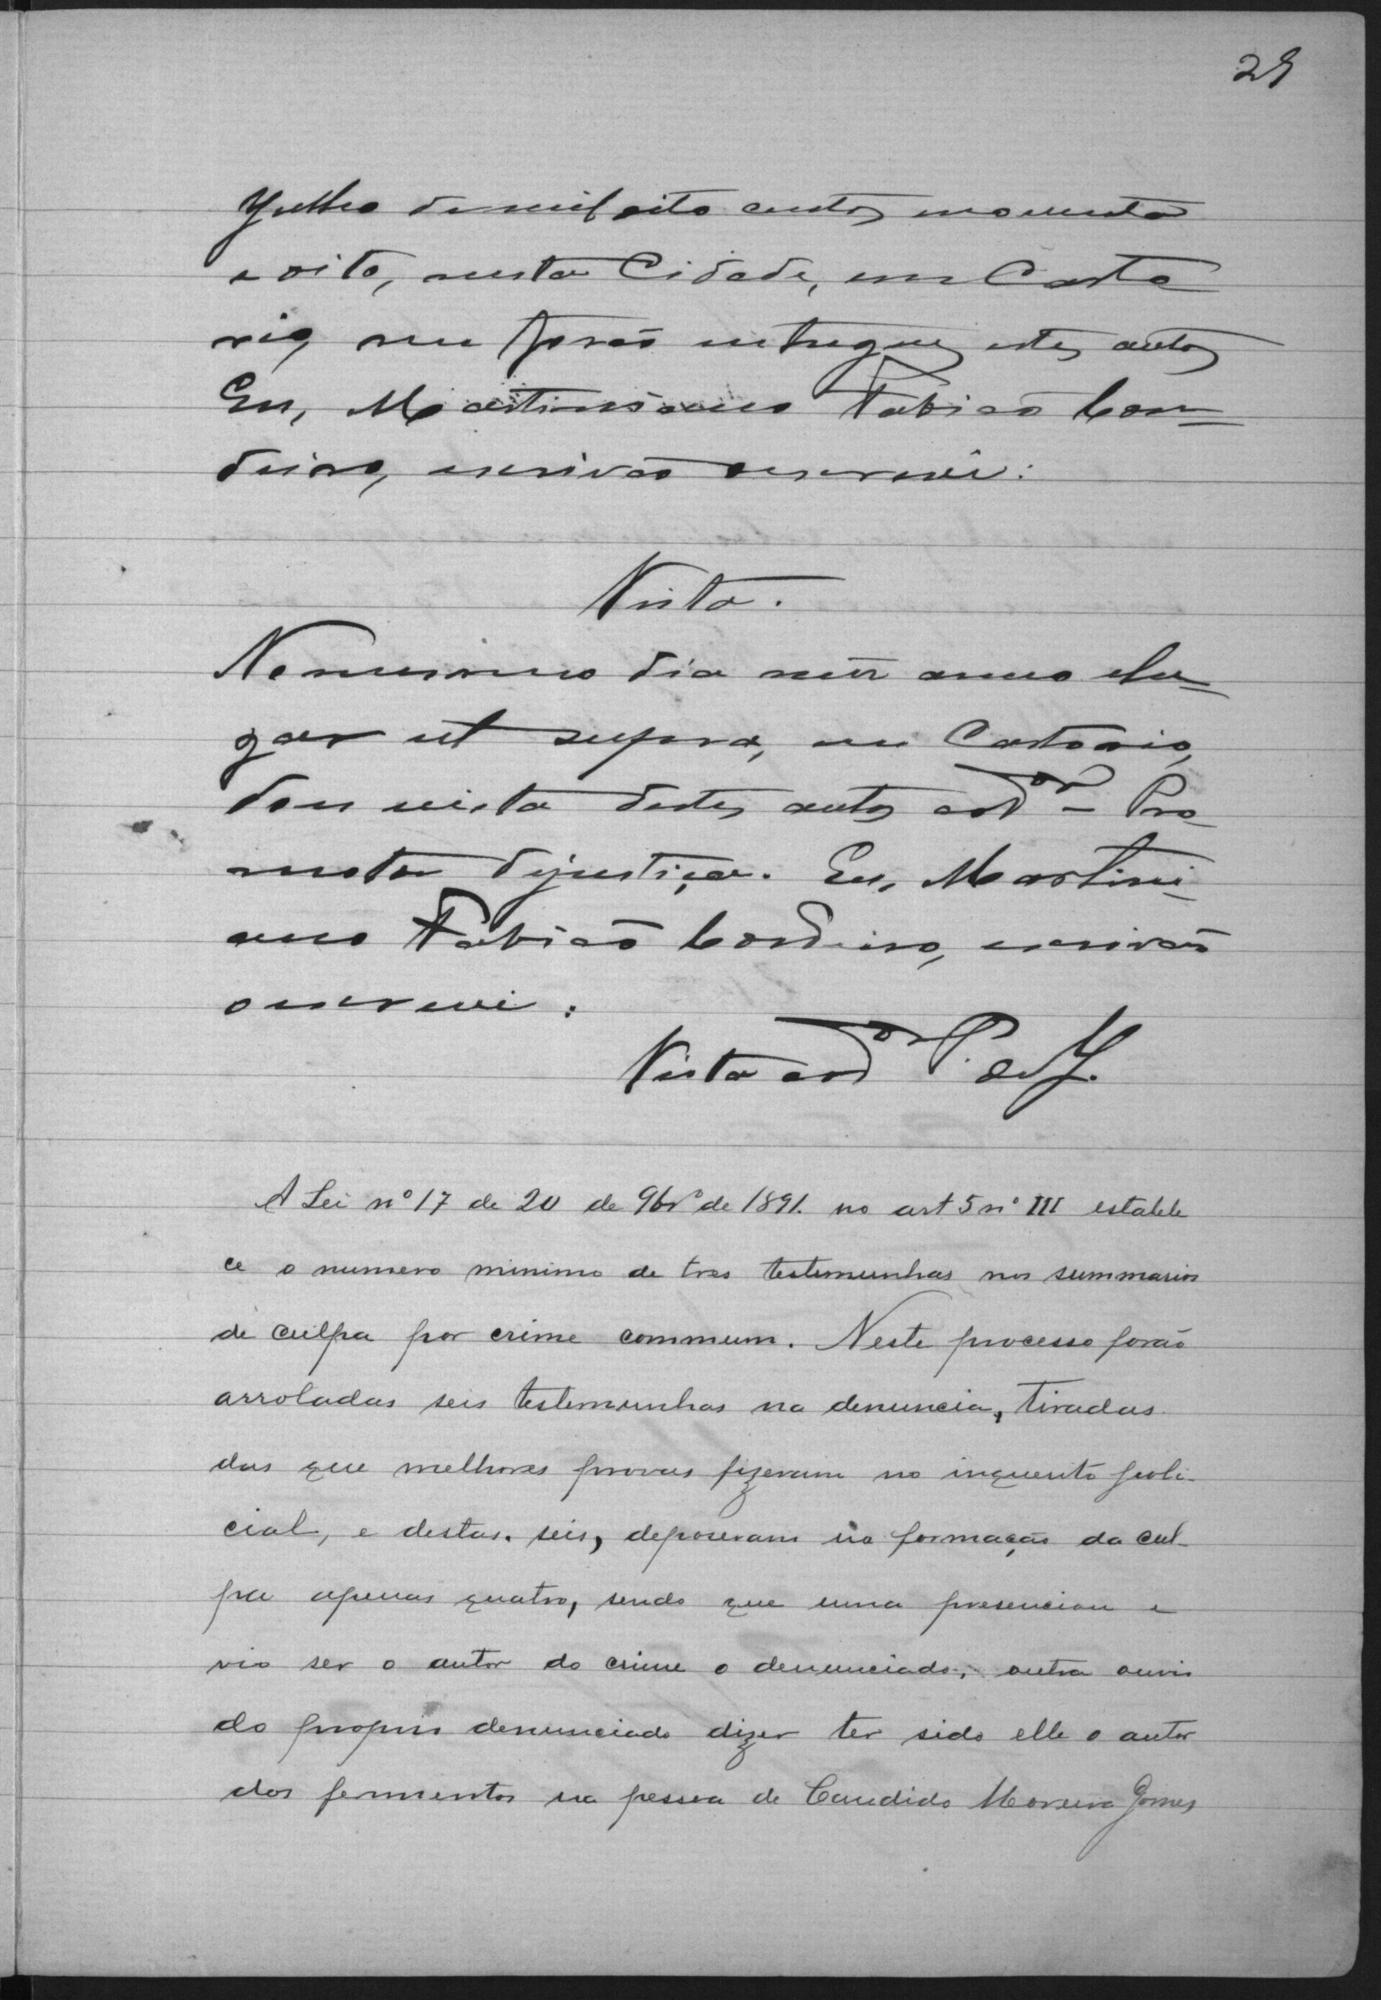 29
Julho de mil oito centos noventa
e oito, nesta Cidade, em Carto
rio, me forão entregues estes autos
Eu, Martiniano Fabião Cor=
deiro, escrivão o escrevi:
Vista.
No mesmo dia mêz anno e lu=
gar ut supra, em Cartorio,
dou vista destes autos ao Dor Pro
motor dejustiça. Eu, Martini=
ano Fabião Cordeiro, escrivão
o escrevi:
Vista ao Dor P. da J.
A Lei nº 17 de 20 de 9brº de 1891. no art 5 nº III estabele
ce o numero minimo de tres testemunhas nos summarios
de culpa por crime commum. Neste processo forão
arroladas seis testemunhas na denuncia, tiradas
das que melhores provas fizeram no inquerito poli-
cial, e destas seis, deposeram na formação da cul-
pa apenas quatro, sendo que uma presenciou e
vio ser o autor do crime o denunciado, outra ouvio
do proprio denunciado dizer ter sido elle o autor
dos ferimentos na pessoa de Candido Moreira Gomes